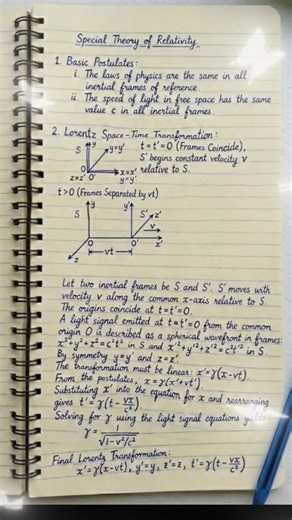 Special Theory of Relativity
1. Basic Postulates:
i. The laws of physics are the same in all
inertial frames of reference.
ii. The speed of light in free space has the same
value c in all inertial frames.
2. Lorentz Space-Time Transformation:
y
S
y=y'
t=t'=0 (Frames Coincide),
S' begins constant velocity v
O
x=x' relative to S.
z=z' O' y=y'
t>0 (Frames Separated by vt)
S y y' S' z'
v
O O' x'
z vt
Let two inertial frames be S and S'. S' moves with
velocity v along the common x-axis relative to S.
The origins coincide at t=t'=0.
A light signal emitted at t=t'=0 from the common
origin O is described as a spherical wavefront in frames:
x²+y²+z²=c²t² in S and x'²+y'²+z'²=c²t'² in S.
By symmetry y=y' and z=z'.
The transformation must be linear: x'=γ(x-vt).
From the postulates, x=γ(x'+vt').
Substituting x' into the equation for x and rearranging
gives t'=γ(t-vx/c²)
Solving for γ using the light signal equations yields
γ=1/√1-v²/c²
Final Lorentz Transformation:
x'=γ(x-vt), y'=y, z'=z, t'=γ(t-vx/c²)